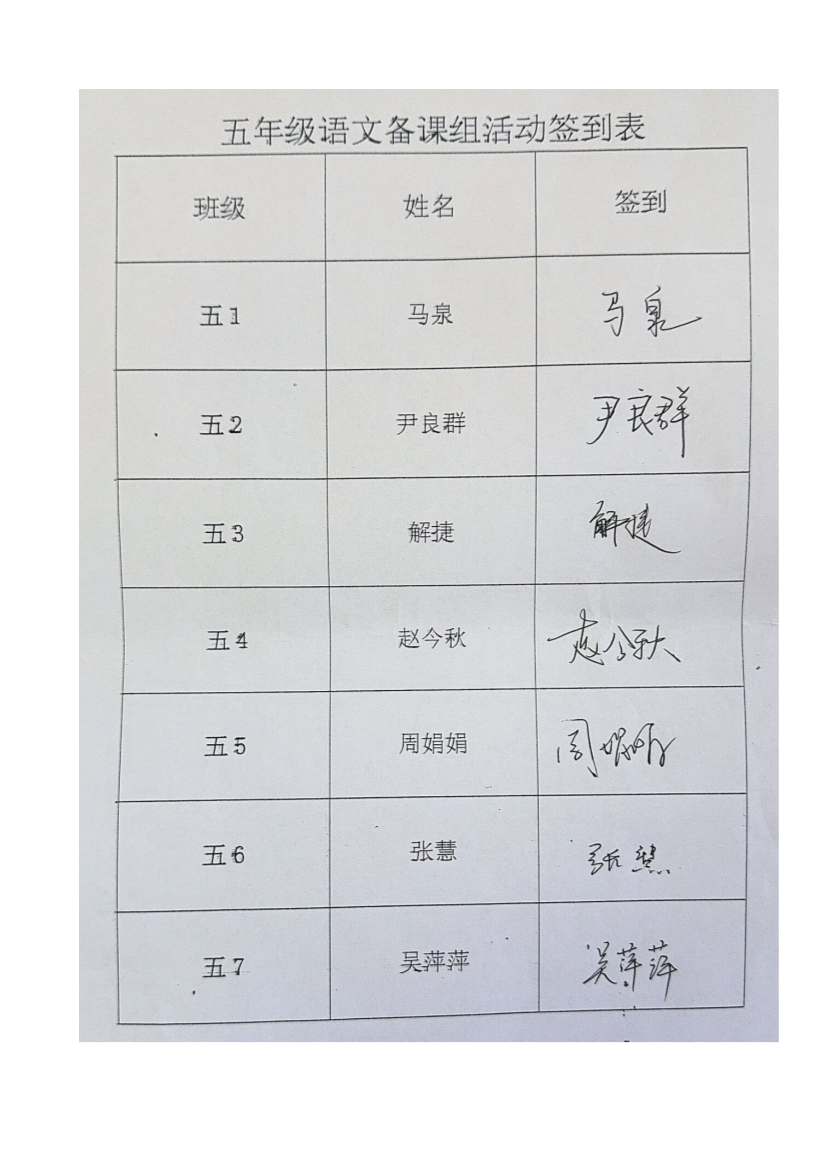 五年级语文备课组活动签到表
班级 姓名 签到
五1 马泉 马泉
五2 尹良群 尹良群
五3 解捷 解捷
五4 赵今秋 赵今秋
五5 周娟娟 周娟娟
五6 张慧 张慧
五7 吴萍萍 吴萍萍